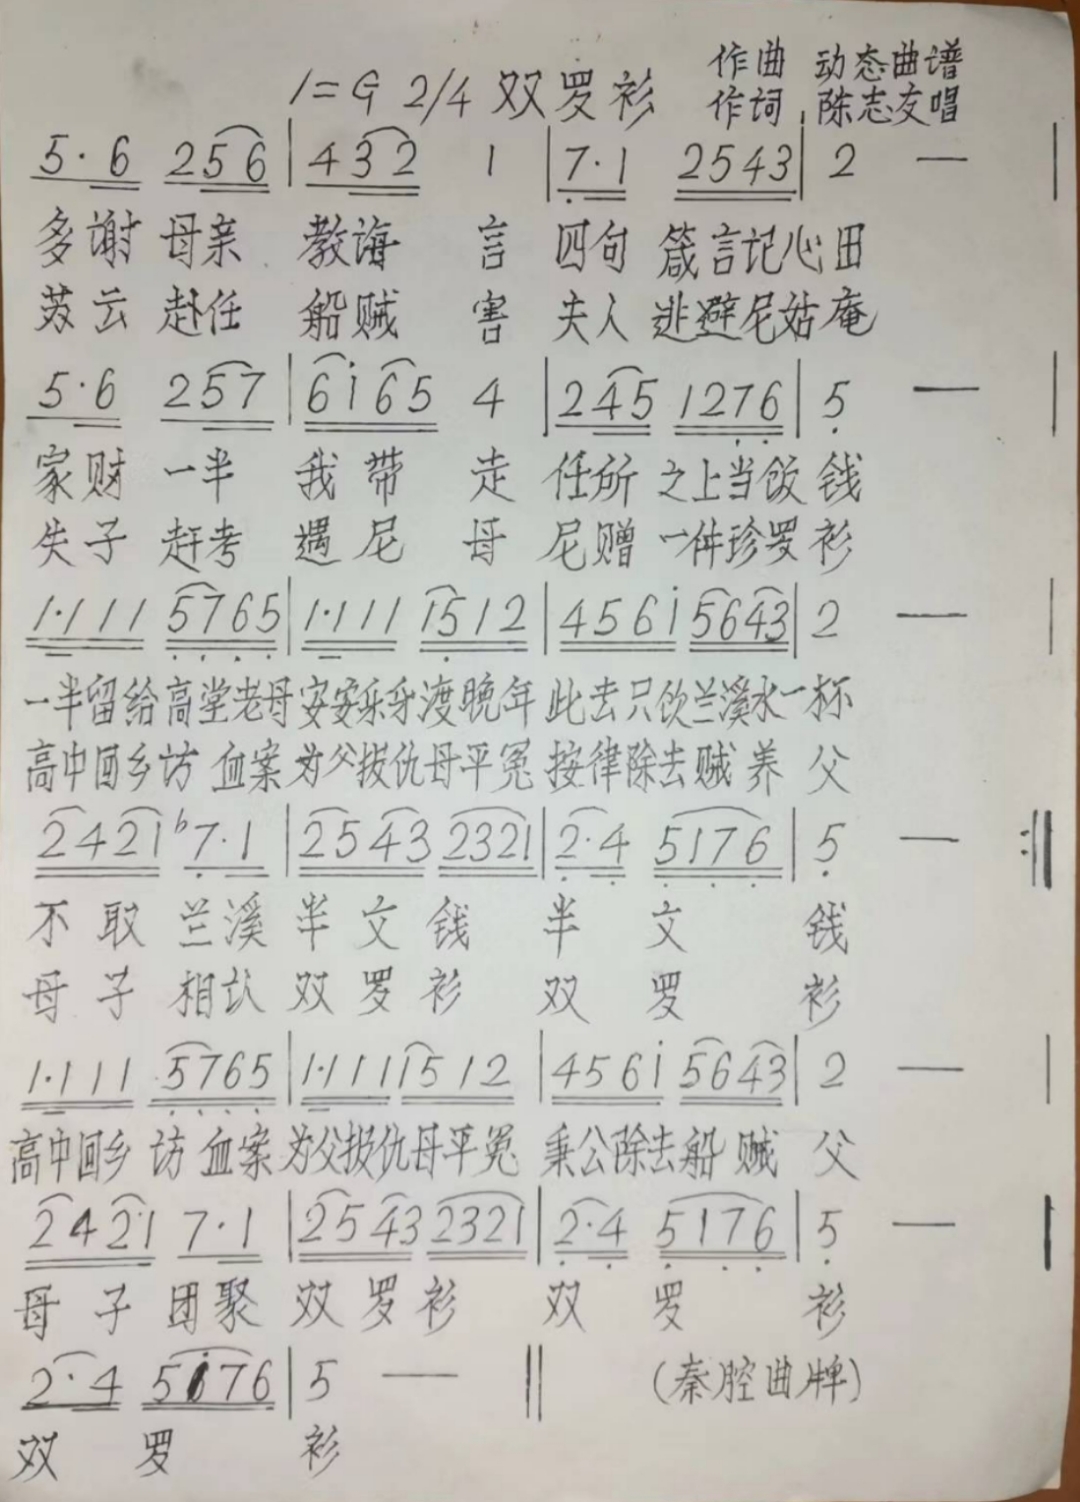 作曲 动态曲谱
1=G 2/4 双罗衫 作词 陈志友唱
5·6 256 | 432 1 | 7·1 2543 | 2 — |
多谢 母亲 教诲 言 四句 箴言记心田
苏云 赴任 船贼 害 夫人 逃避尼姑庵
5·6 257 | 6i65 4 | 245 1276 | 5 — |
家财 一半 我带 走 任所 之上当饭 钱
失子 赶考 遇尼 母 尼赠 一件珍罗 衫
1·111 5765 | 1·111 1512 | 456i 5643 | 2 — |
一半留给高堂老母安安乐乐渡晚年 此去只饮兰溪水一杯
高中回乡访 血案 为父报仇母平冤 按律除去贼 养 父
2421 b7·1 | 2543 2321 | 2·4 5176 | 5 — :||
不 取 兰溪 半 文 钱 半 文 钱
母 子 相认 双 罗 衫 双 罗 衫
1·111 5765 | 1·111 1512 | 456i 5643 | 2 — |
高中回乡 访 血案 为父报仇母平冤 秉公除去船 贼 父
2421 7·1 | 2543 2321 | 2·4 5176 | 5 — |
母 子 团聚 双 罗 衫 双 罗 衫
2·4 5176 | 5 — || (秦腔曲牌)
双 罗 衫